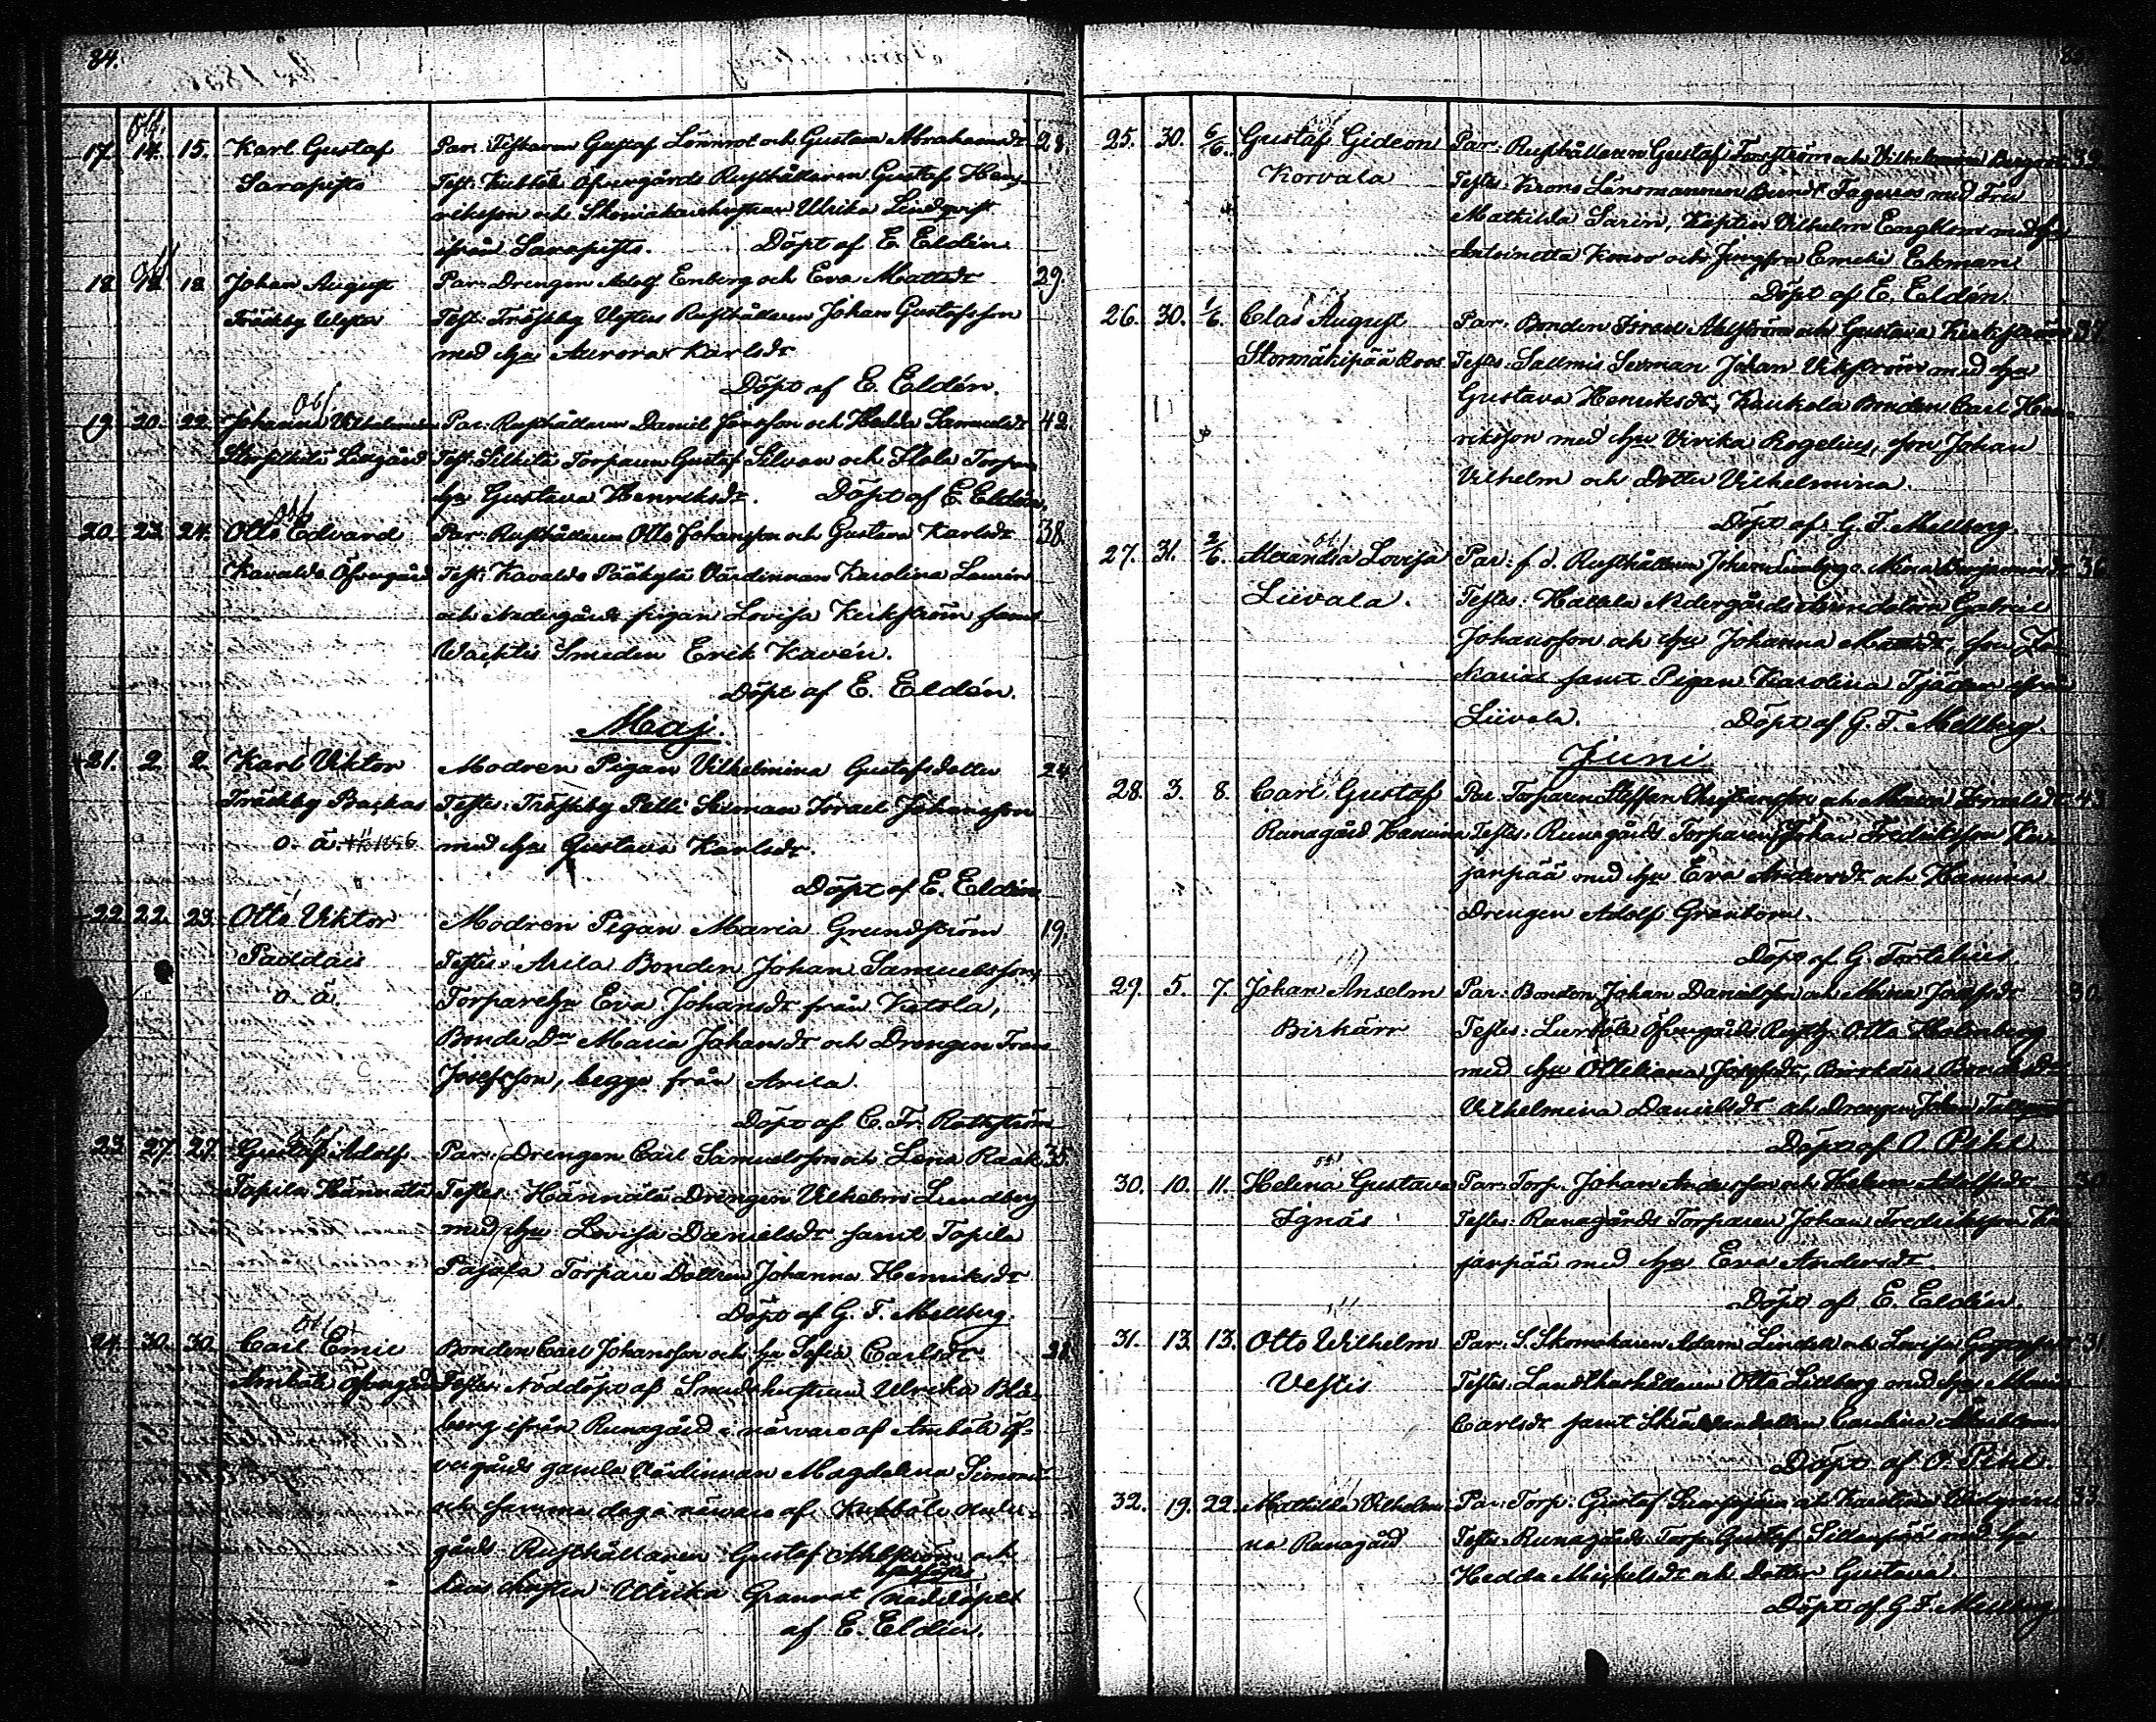 84.
17. 14. 15. Karl Gustaf Par: Fiskaren Gustaf Lönnrot och Gustava Abrahamsdr 28.
Sarapisto Test: Kubböle Öfvergårds Rusthållaren Gustaf Hen-
riksson och Skomakarehustrun Ulrika Lindqvist
ifrån Sarapisto. Döpt af E. Eldén.
18. 18. Johan August Par: Drengen Adolf Enberg och Eva Mattsdr 29.
Träskby Westers Test: Träskby Westers Rusthållaren Johan Gustafsson
med hu Aurora Karlsdr
Döpt af E. Eldén.
19. 20. 22. Johanna Vilhelmina Par: Rusthållaren Daniel Jönsson och Hedda Samuelsdr 42.
Test: Silkilä Torparen Gustaf Silvan och Torpare
hu Gustava Henriksdr. Döpt af E. Eldén.
20. 23. 24. Otto Edvard Par: Rusthållaren Otto Johansson och Gustava Karlsdr 38.
Kavalto Öfvergård Test: Kavalto Pääkylä Värdinnan Karolina Laurén
och Nedergårds pigan Lovisa Keckström samt
Smeden Erik Kavén.
Döpt af E. Eldén.
Maj.
21. 2. 2. Karl Viktor Modren Pigan Vilhelmina Gustafsdotter 24.
Träskby Backas Testes: Träskby Pelli Seiman Israel Johansson
o. ä. med hu Gustava Karlsdr.
Döpt af E. Eldén
22. 22. 23. Otto Viktor Modren Pigan Maria Grundström 19.
Paddais Testes: Arila Bonden Johan Samuelsson,
o. ä. Torparehu Eva Johansdr från Ketola,
Bonde Dr Maria Johansdr och Drengen Frans
Josefsson, begge från Arila.
Döpt af C. Fr. Rothström
23. 27. 27. Gustaf Adolf Par: Drengen Carl Samuelsson och Lena Raak 35.
Tapila Hännälä Testes: Hännälä Drengen Vilhelm Lundberg
med hu Lovisa Danielsdr samt Tapila
Pajala Torpare Dottren Johanna Henriksdr
Döpt af G. F. Mellberg.
24. 30. 30. Carl Emil Bonden Carl Johansson och hu Sofia Carlsdr 28.
Ambole Öfvergård Testes: Nöddöpt af Smedshustrun Ulrika Blå-
berg ifrån Runagård i närvaro af Ambole Öf-
vergårds gamla Värdinnan Magdalena Simonsdr
och samma dag i närvaro af Kubböle Neder-
gårds Rusthållaren Gustaf Ahlström och
hans hustru Ulrika Granrot nöddöpt
af E. Eldén.
25. 30. 6/6. Gustaf Gideon Par: Rusthållaren Gustaf Forsström och Vilhelmina Bergroth 32.
Korvala Testes: Krono Länsmannen Berndt Fagerroos med Fru
Mathilda Sarin, Vilhelm Engblom med fru
Antoinetta och Jungfru Emelie Ekman
Döpt af E. Eldén.
26. 30. 1/6. Clas August Par: Bonden Israel Ahlström och Gustava 37.
Stormäkipää Roos Testes: Sallmis Seiman Johan Vikström med hu
Gustava Henriksdr, Kaukola Bonden Carl Hen-
riksson med hu Vivika Rogelius, son Johan
Vilhelm och Dotter Vilhelmina.
Döpt af G. F. Mellberg.
27. 31. 2/6. Alexandra Lovisa Par: f. d. Rusthållaren Johan 36
Liivala. Testes: Nedergårds Gabriel
Johansson och hu Johanna Mattsdr, son Za-
karias samt Pigan Karolina Tjäder ifrån
Liivala. Döpt af G. F. Mellberg.
Juni
28. 3. 8. Carl Gustaf Par: Torparen Steffan Christiansson och Maria Israelsdr 43
Runagård Hanuina Testes: Runagårds Torparen Johan Fredriksson Kar-
janpää med hu Eva Andersdr och Hanuina
Drengen Adolf Granbom.
Döpt af G. Fortelius.
29. 5. 7. Johan Anselm Par: Bonden Johan Danielsson och Maria Josefsdr 30.
Birkärr Testes: Lurböle Öfvergårds Rusth: Otto Holmberg
med hu Ottiliana Josefsdr, Birkärrs
Vilhelmina Danielsdr och Drengen Johan
Döpt af O. Pihl
30. 10. 11. Helena Gustava Par: Torp. Johan Andersson och Helena Adolfsdr 30
Ignäs Testes: Runagårds Torparen Johan Fredriksson Kar-
janpää med hu Eva Andersdr.
Döpt af E. Eldén.
31. 13. 13. Otto Vilhelm Par: S. Skomakaren Adam Lindell och Lovisa 31.
Vestis Testes: Otto Lilleberg med hu Maria
Carlsdr samt Carolina
Döpt af O. Pihl.
32. 19. 22. Mathilda Vilhelmi- Par: Torp: Gustaf och Karolina 33.
na Runagård Testes: Runagårds Torp. Gustaf Sillanpää med hu
Hedda Michelsdr och Dotter Gustava
Döpt af G. F. Mellberg